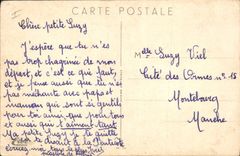 CARTE POSTALE
Chère petite Suzy
J'espère que tu n'es
pas trop chagrinée de mon
départ, et c'est ce qui faut,
et je pense aussi que tu n'es
pas méchante avec papa et
maman qui sont si gentils
pour toi ainsi que pour tous
et aussi qui t'aiment tant
Ma petite Suzy je te quitte
le droit à la
Melle Suzy Viel
Cité des Ormes n° 15
Montebourg
Manche